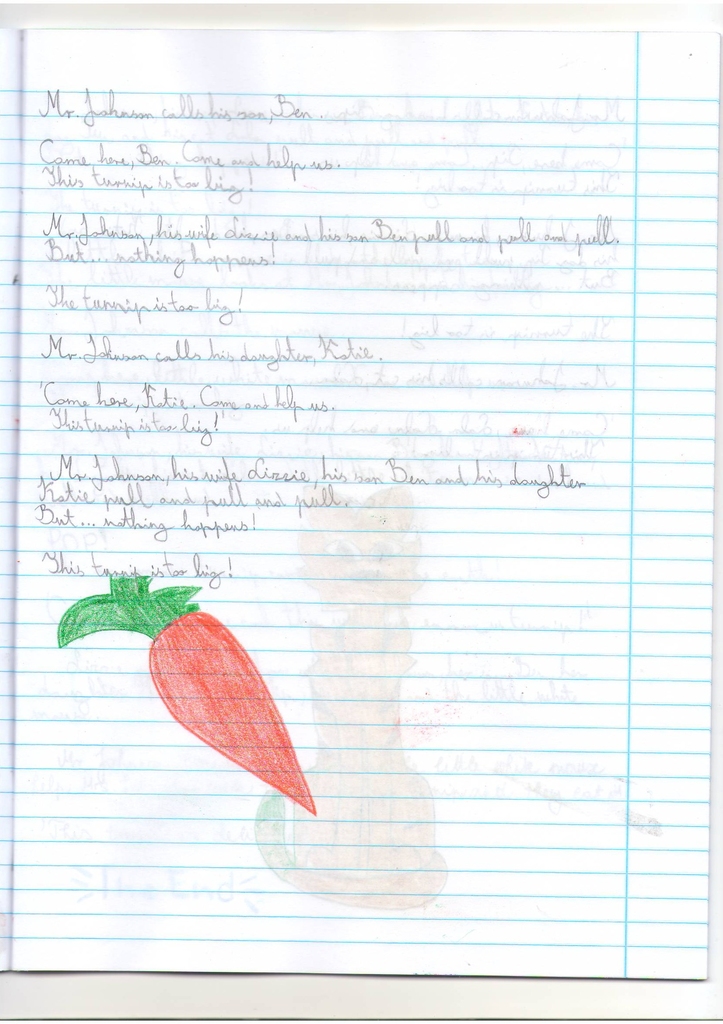 Mr. Johnson calls his son, Ben.
Come here, Ben. Come and help us.
This turnip is too big!
Mr. Johnson, his wife Lizzie and his son Ben pull and pull and pull.
But... nothing happens!
The turnip is too big!
Mr. Johnson calls his daughter, Katie.
'Come here, Katie. Come and help us.
This turnip is too big!'
Mr. Johnson, his wife Lizzie, his son Ben and his daughter
Katie pull and pull and pull.
But... nothing happens!
This turnip is too big!